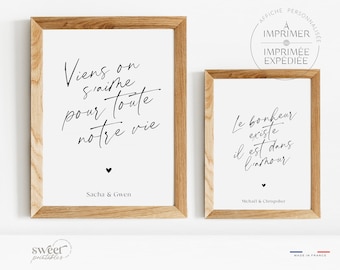 Viens on
s'aime
pour toute
notre vie
Sacha & Gwen
Le bonheur
existe
il est dans
l'amour
Michaël & Christopher
AFFICHE PERSONNALISÉE
À
IMPRIMER
ou
IMPRIMÉE
EXPÉDIÉE
sweet
printables
MADE IN FRANCE